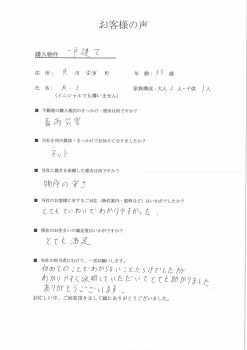 お客様の声
購入物件 一戸建て
住所: 市 町 年齢: 35 歳
氏名: K.S. 家族構成:大人 2 人・子供 1 人
(イニシャルでも構いません)
■ 不動産の購入検討のきっかけ・理由は何ですか?
豪雨災害
■ 当社を何の媒体・きっかけでお知りになりましたか?
ネット
■ 当社に査定を依頼した理由は何ですか?
物件の
■ 当社のお客様に対するご対応(物件案内・説明など)はいかがでしたか?
とてもていねいでわかりやすかった。
■ 現在のお住まいの満足度はいかがですか?
とても満足
■ 当社の担当者にむけて、一言お願いします。
初めてのことでわからないことだらけでしたが
わかりやすく説明していただいてとても助かりました。
ありがとうございます。
お忙しい中、ご回答頂きまして誠にありがとうございました。